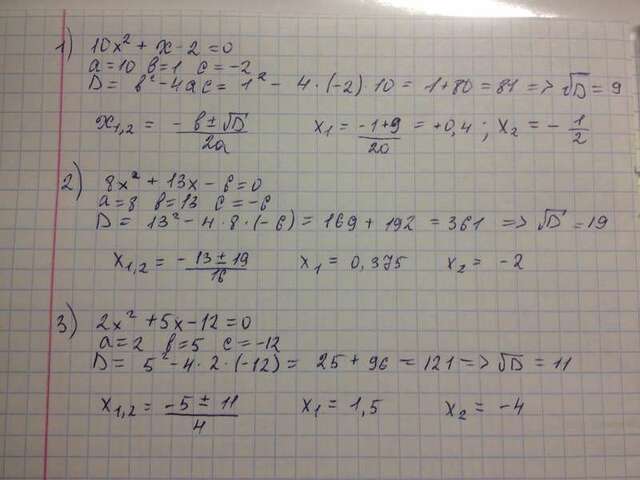 1) 10x² + x - 2 = 0
a = 10 b = 1 c = -2
D = b² - 4ac = 1² - 4·(-2)·10 = 1 + 80 = 81 => √D = 9
x₁,₂ = (-b ± √D)/2a x₁ = (-1+9)/20 = +0,4 ; x₂ = -1/2
2) 8x² + 13x - 6 = 0
a = 8 b = 13 c = -6
D = 13² - 4·8·(-6) = 169 + 192 = 361 => √D = 19
x₁,₂ = (-13 ± 19)/16 x₁ = 0,375 x₂ = -2
3) 2x² + 5x - 12 = 0
a = 2 b = 5 c = -12
D = 5² - 4·2·(-12) = 25 + 96 = 121 => √D = 11
x₁,₂ = (-5 ± 11)/4 x₁ = 1,5 x₂ = -4